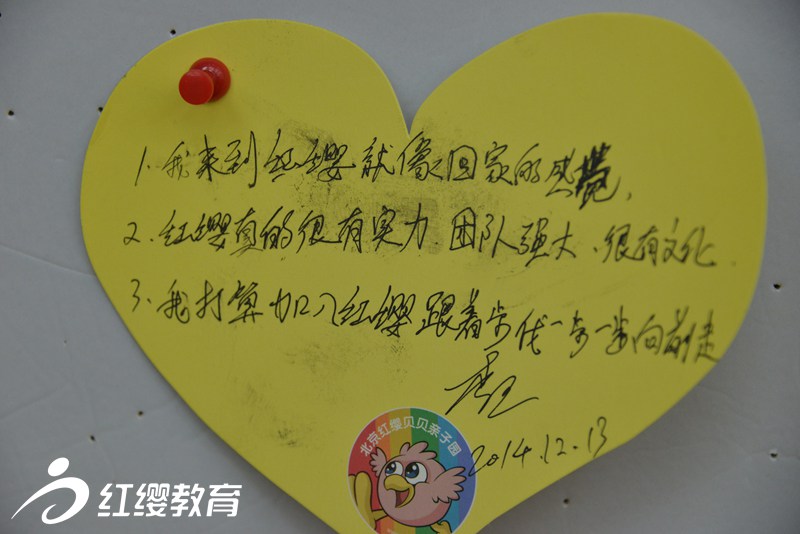 1.我来到红缨就像回家的感觉,
2.红缨真的很有实力.团队强大、很有文化
3、我打算加入红缨跟着步伐一步一步向前走
2014.12.13
北京红缨贝贝亲子园
红缨教育